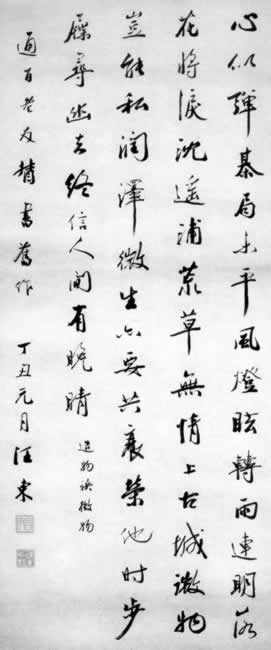 心似彈棊局未平風燈眩轉雨連明落
花將淚沈遙浦荒草無情上古城微物
豈能私潤澤微生亦要共衰榮他時步
屧尋幽去終信人間有晚晴 造物誤微物
百老友書舊作 丁丑元月汪東